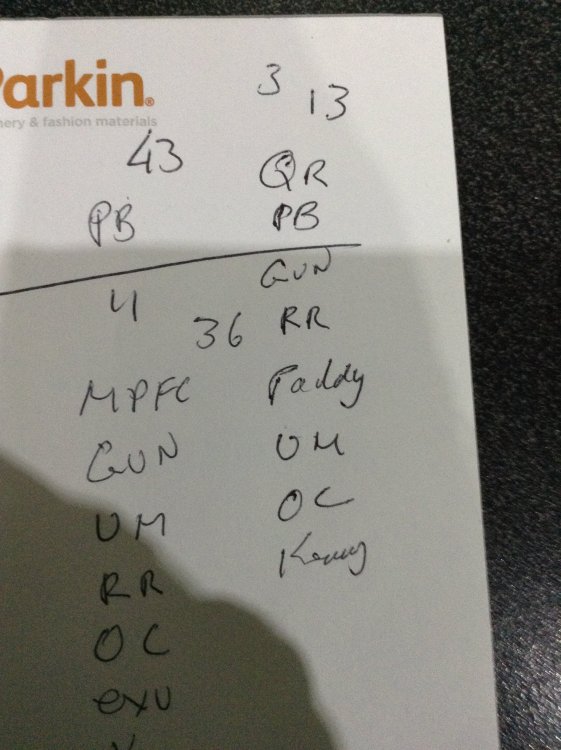 Parkin®
nery & fashion materials
3 13
43
QR
PB
PB
GUN
4
36 RR
MPFC
Paddy
GUN
UM
UM
OC
RR
Kenny
OC
exu